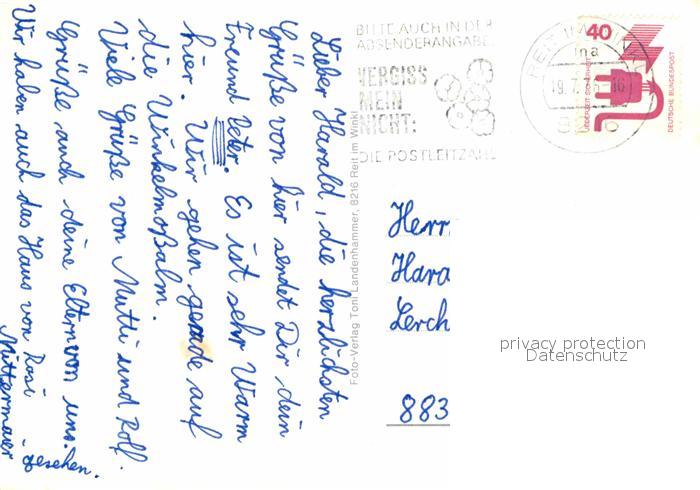 Lieber Harald, die herzlichsten
Grüße von hier sendet Dir dein
Freund Peter. Es ist sehr Warm
hier. Wir gehen gerade auf
die Winkelmoßalm.
Viele Grüße von Mutti und Rolf.
Grüße auch deine Eltern von uns.
Wir haben auch das Haus von Rosi
Mittermaier gesehen.
Foto-Verlag Toni Landenhammer, 8216 Reit im Winkl
BITTE AUCH IN DER
ABSENDERANGABE:
VERGISS
MEIN
NICHT:
DIE POSTLEITZAHL
REIT IM WINKL
19.7.
40
JEDERZEIT SICHERHEIT
DEUTSCHE BUNDESPOST
Herr
Hara
Lerch
883
privacy protection
Datenschutz